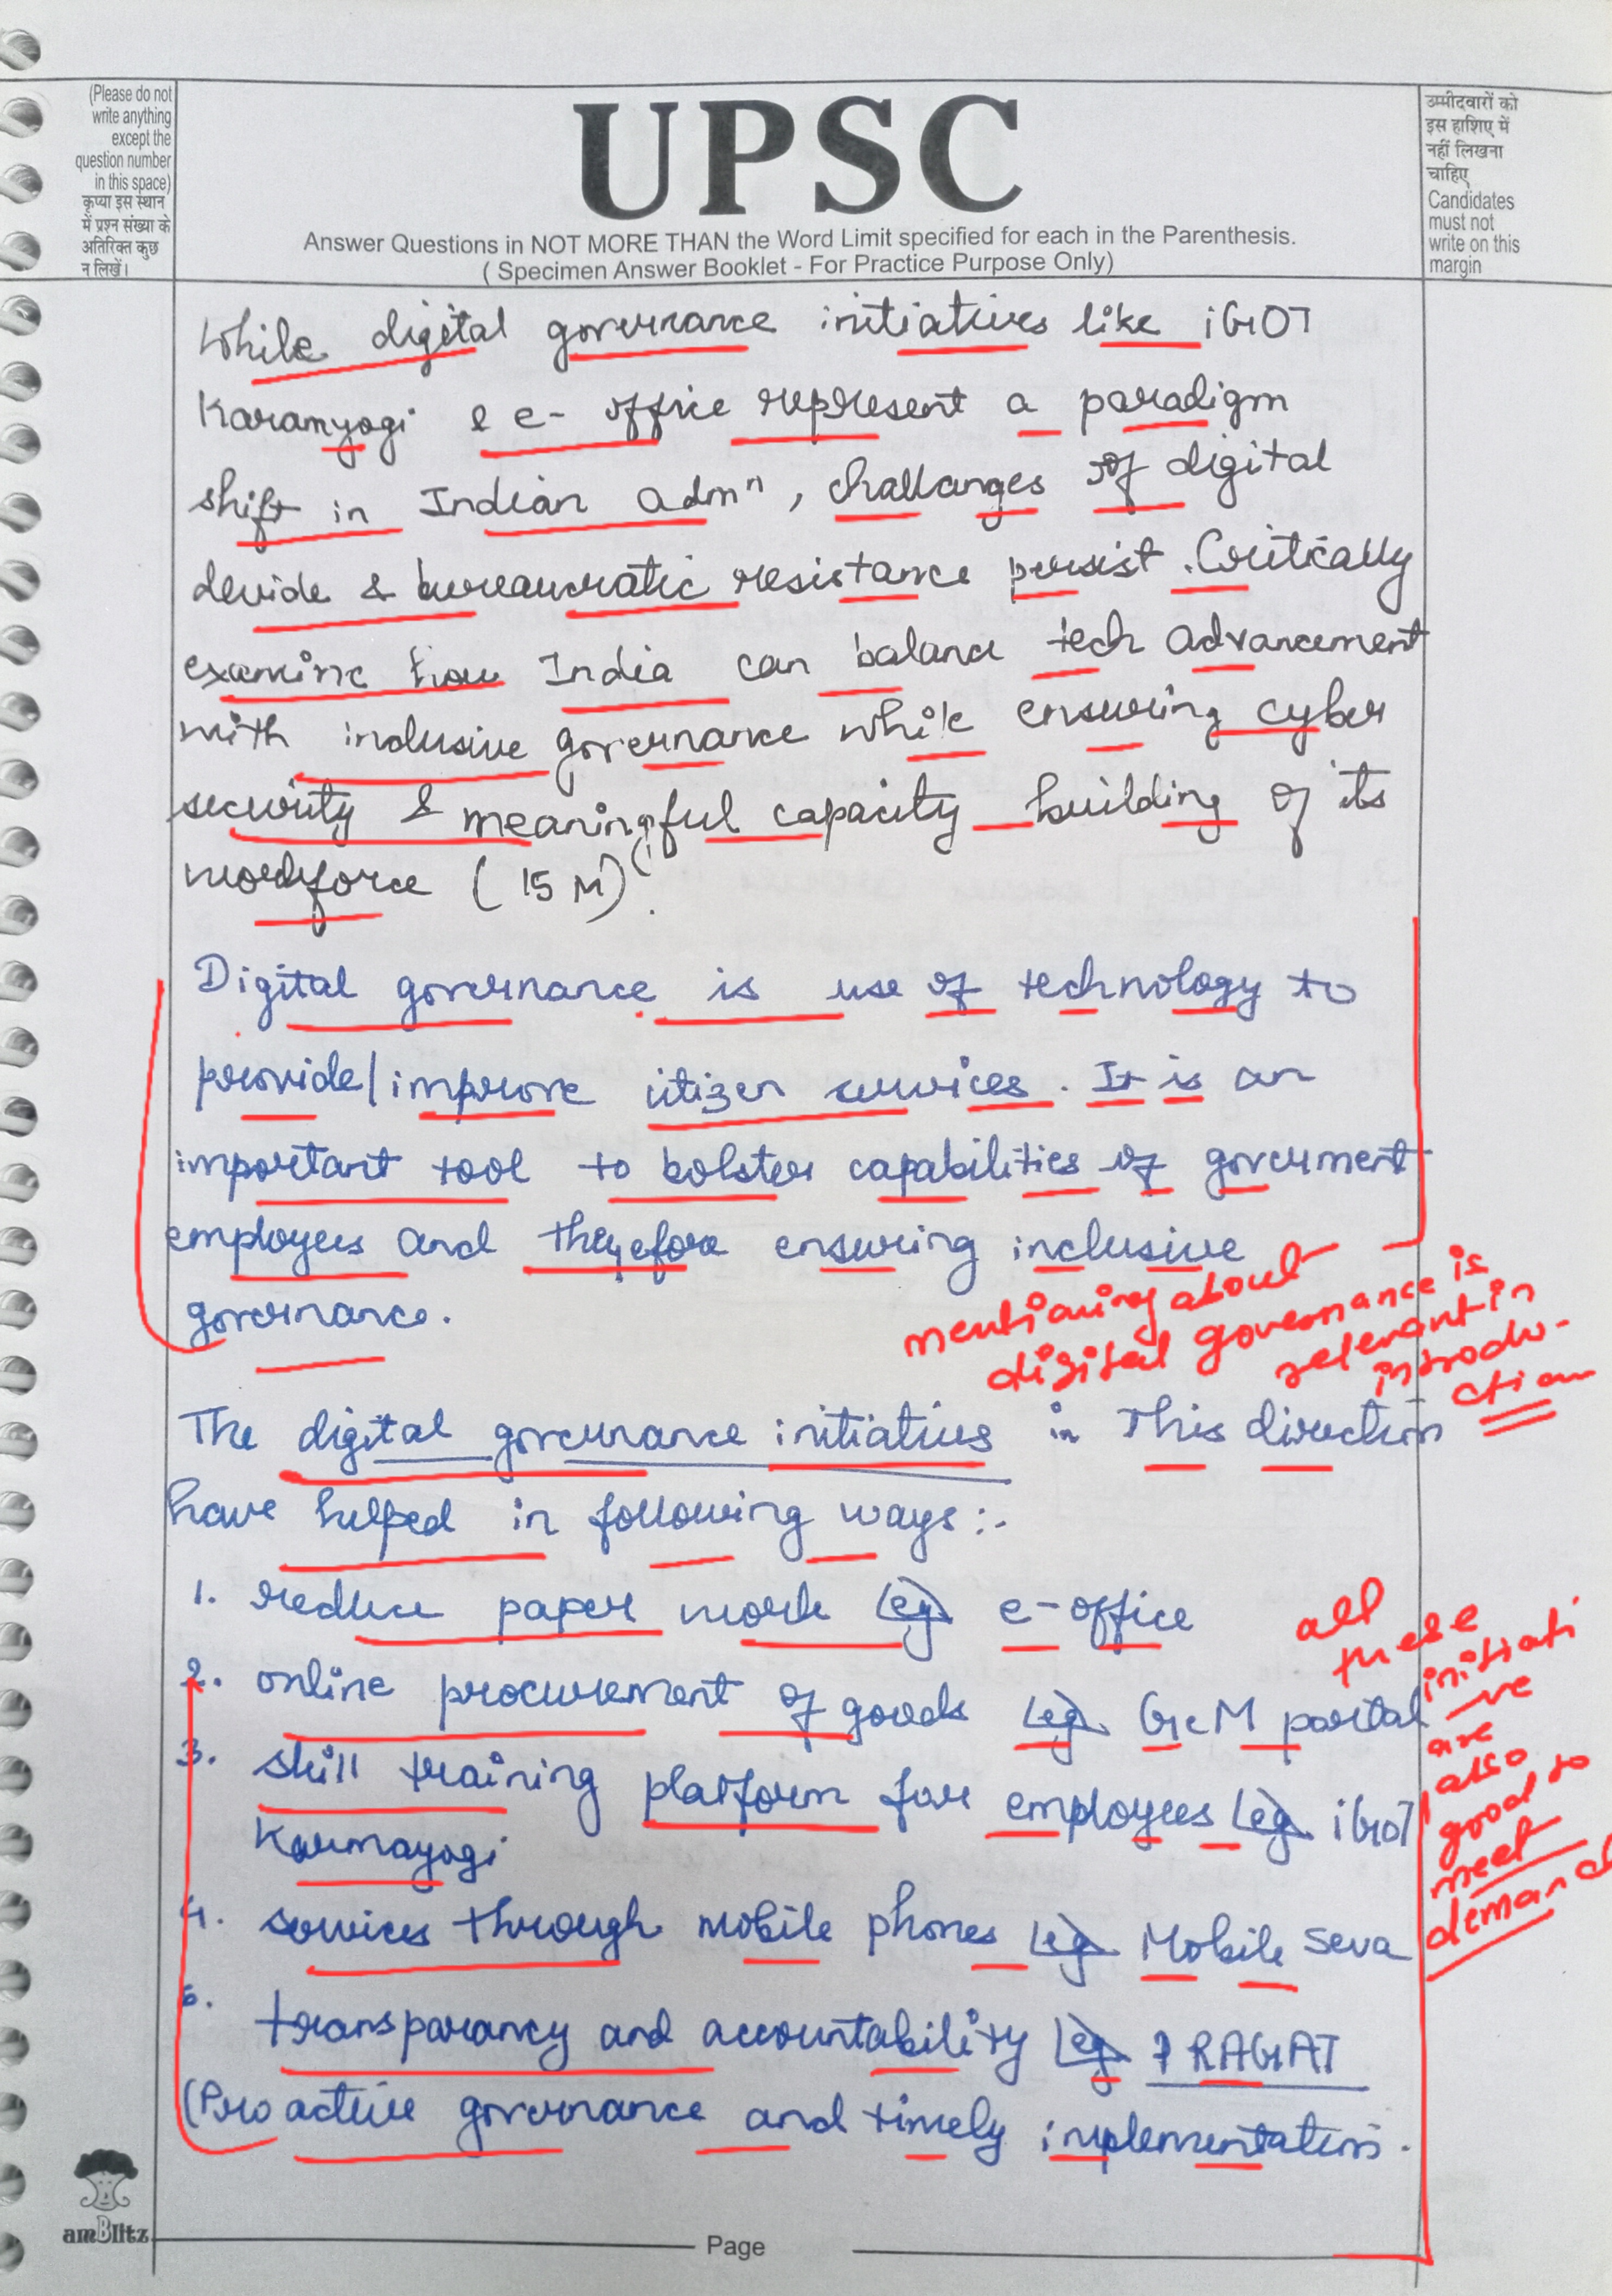 (Please do not
write anything
except the
question number
in this space)
कृप्या इस स्थान
में प्रश्न संख्या के
अतिरिक्त कुछ
न लिखें।
UPSC
Answer Questions in NOT MORE THAN the Word Limit specified for each in the Parenthesis.
( Specimen Answer Booklet - For Practice Purpose Only)
उम्मीदवारों को
इस हाशिए में
नहीं लिखना
चाहिए
Candidates
must not
write on this
margin
While digital governance initiatives like iGOT
Karamyogi & e- office represent a paradigm
shift in Indian admⁿ, challanges of digital
devide & bureaucratic resistance persist. Critically
examine how India can balance tech advancement
with inclusive governance while ensuring cyber
security & meaningful capacity building of its
workforce (15 M).
Digital governance is use of technology to
provide/improve citizen services. It is an
important tool to bolster capabilities of government
employees and therefore ensuring inclusive
governance.
mentioning about
digital governance is
relevant in
introdu-
ction
The digital governance initiatives in This direction
have helped in following ways:-
1. reduce paper work eg e-office
2. online procurement of goods eg GeM portal
3. skill training platform for employees eg iGOT
Karmayogi
4. services through mobile phones eg Mobile Seva
5. transparancy and accountability eg PRAGATI
(Pro active governance and timely implementation.
all
these
initiati
ve
are
also
good to
meet
demand
amBlitz
Page